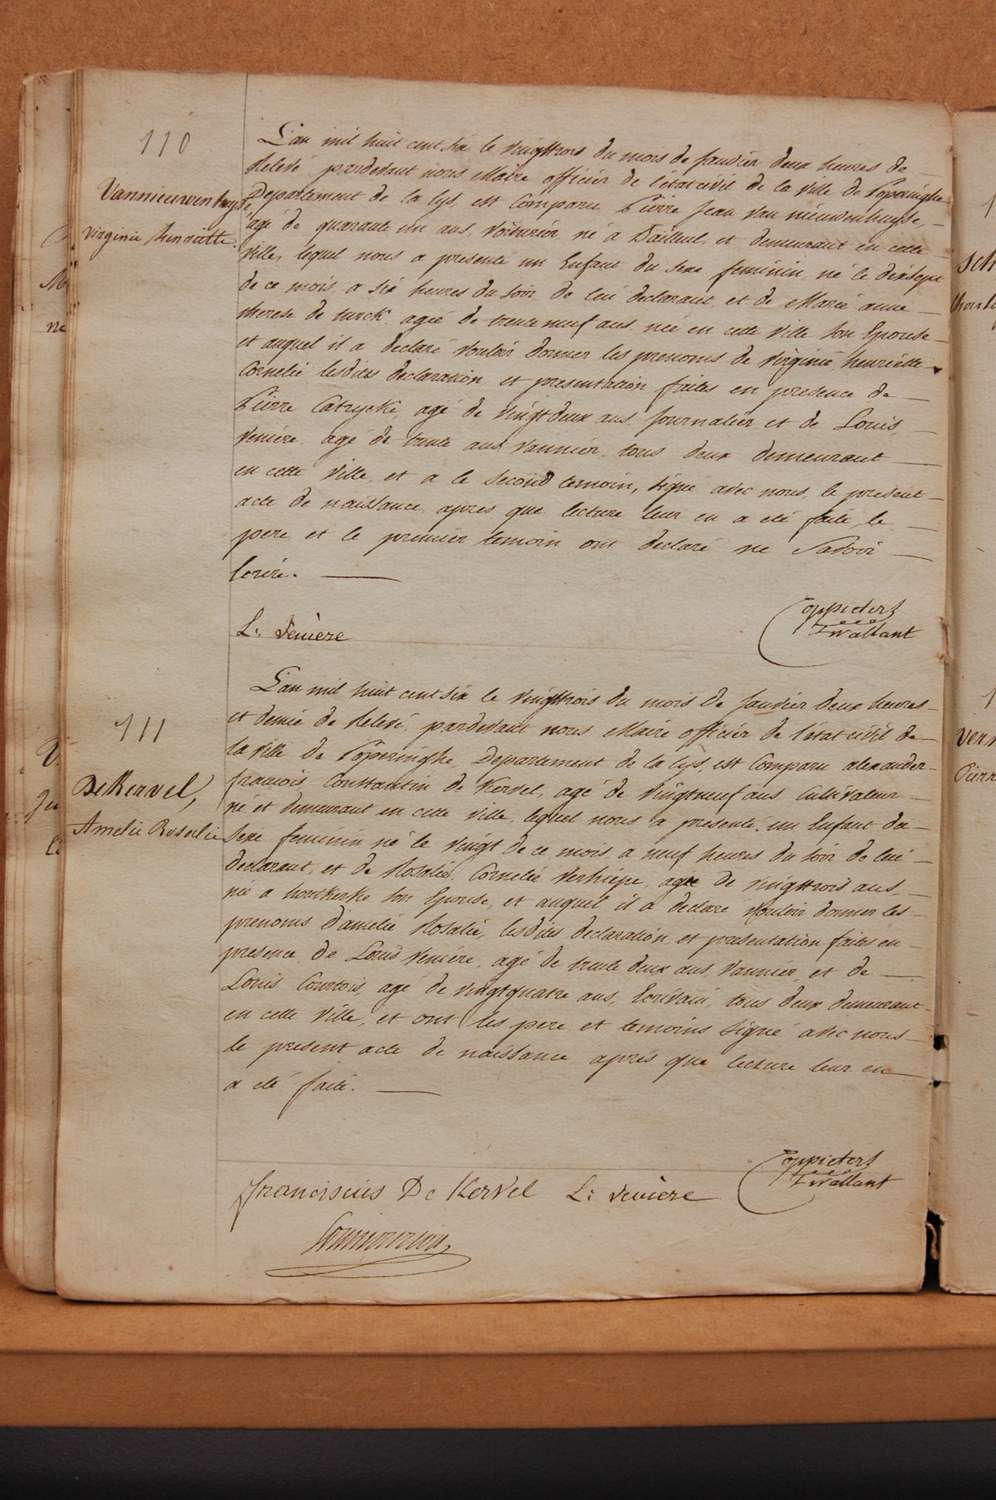 110
Vannieuwenhuyse
Virginie Henriette.
L'an mil huit cent six le vingttrois du mois de Janvier deux heures de
Relevé pardevant nous Maire officier de l'état civil de la ville de Poperinghe
Departement de la Lys, est Comparu Pierre Jean Van nieuwenhuyse
agé de quarante un ans, Voiturier né à Bailleul, et demeurant en cette
ville, lequel nous a presenté un Enfant du sexe feminin né le dixsept
de ce mois a six heures du soir de lui declarant et de Marie anne
therese de turck agée de trente neuf ans née en cette ville son Epouse
et auquel il a declaré vouloir donner les prenoms de Virginie henriette
Cornelie lesdites declaration et presentation faites en presence de
Pierre Catrycke, agé de vingt deux ans Journalier et de Louis
Veniere agé de trente ans vannier tous deux demeurant
en cette ville, et a le second temoin, signé avec nous, le present
acte de naissance, apres que lecture leur en a eté faite, le
pere et le premier temoin ont declaré ne Savoir
Ecrire.
L: Veniere
Coppieters
T'wallant
111
De Kervel,
Amelie Rosalie
L'an mil huit cent six le vingttrois du mois de Janvier deux heures
et demie de Relevé, pardevant nous Maire officier de l'état civil de
la ville de Poperinghe, Departement de la Lys, est Comparu alexander
francois Constantin de Kervel, agé de vingtneuf ans Cultivateur
né et demeurant en cette ville, lequel nous a presenté un Enfant du
Sexe feminin né le vingt de ce mois a neuf heures du soir de lui
declarant, et de Rosalie Cornelie Verhiepe, agée de vingttrois ans
né a houtkerke son Epouse, et auquel il a declaré vouloir donner les
prenoms d'amelie Rosalie, lesdites declaration et presentation faites en
presence de Louis Veniere, agé de trente deux ans vannier, et de
Louis Courtois, agé de vingtquatre ans, Ecrivain, tous deux demeurant
en cette ville, et ont les pere et temoins signé avec nous
le present acte de naissance apres que lecture leur en
a eté faite.
Franciscus De Kervel L: Veniere
Coppieters
T'wallant